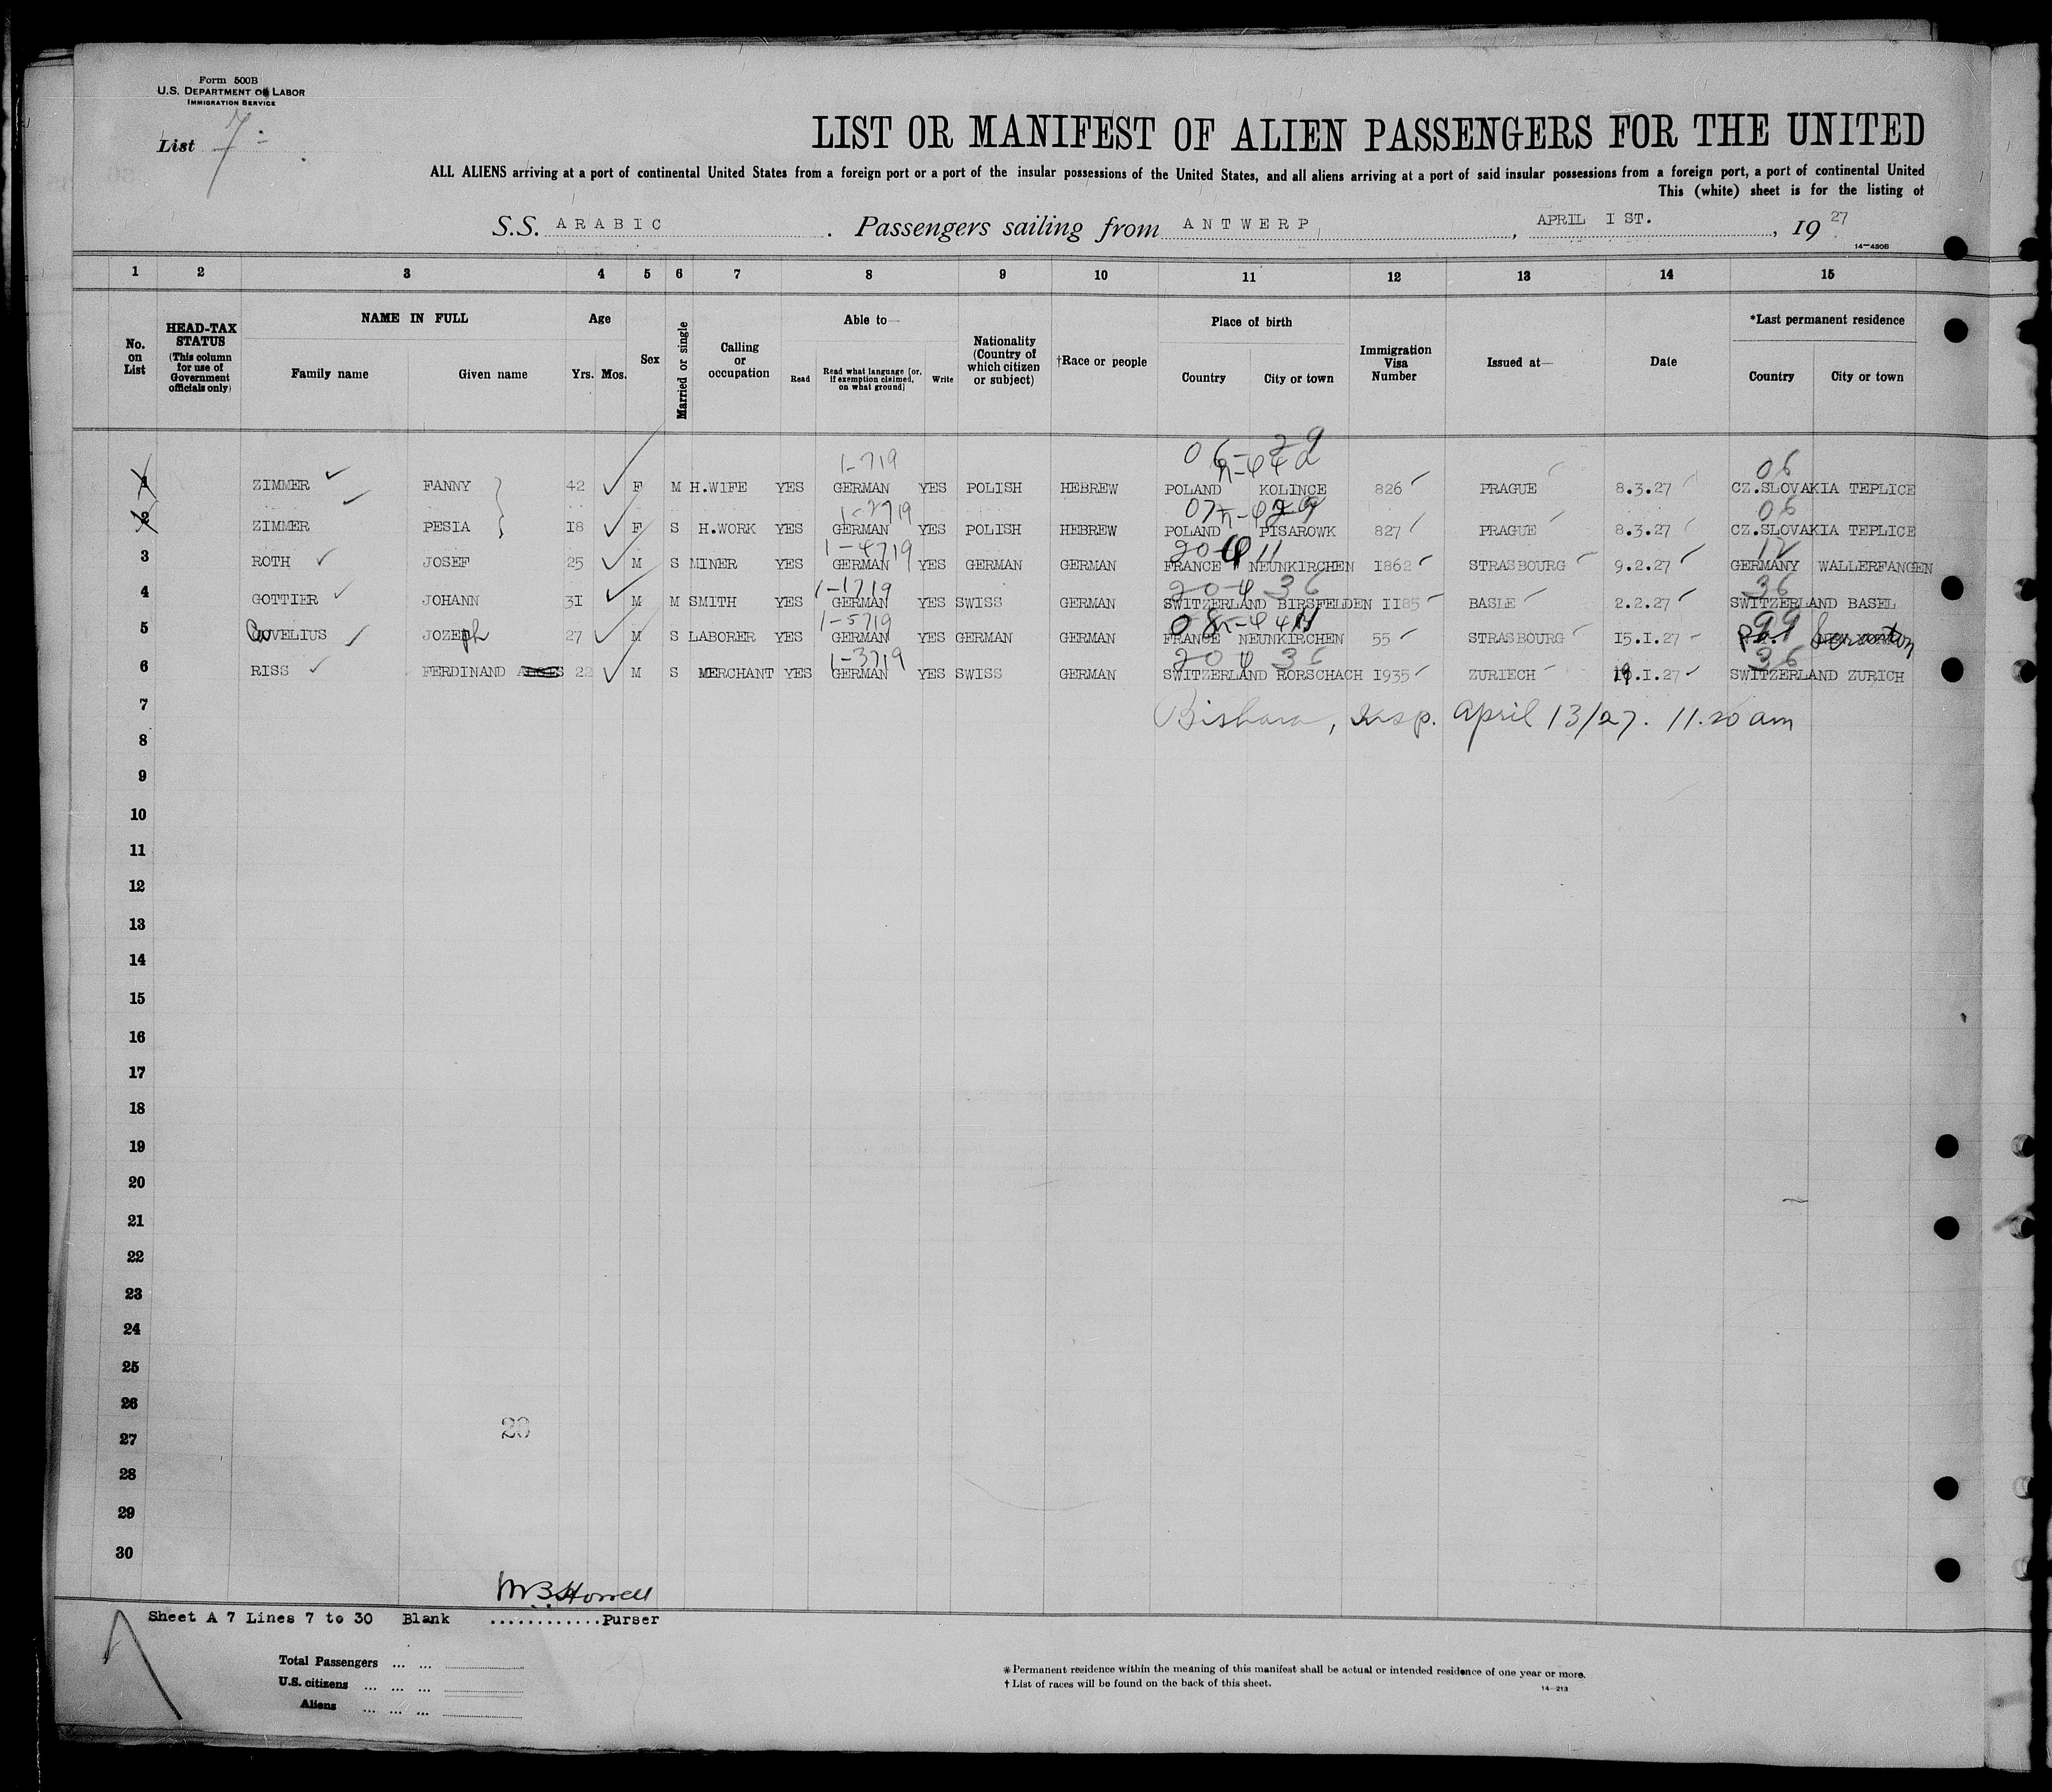 Form 500B
U.S. DEPARTMENT OF LABOR
IMMIGRATION SERVICE
List 7
LIST OR MANIFEST OF ALIEN PASSENGERS FOR THE UNITED
ALL ALIENS arriving at a port of continental United States from a foreign port or a port of the insular possessions of the United States, and all aliens arriving at a port of said insular possessions from a foreign port, a port of continental United
This (white) sheet is for the listing of
S.S. ARABIC . Passengers sailing from ANTWERP , APRIL IST. , 1927
14—430B
1 2 3 4 5 6 7 8 9 10 11 12 13 14 15
No. on List
HEAD-TAX STATUS (This column for use of Government officials only)
NAME IN FULL
Family name Given name
Age
Yrs. Mos.
Sex
Married or single
Calling or occupation
Able to—
Read
Read what language [or, if exemption claimed, on what ground]
Write
Nationality (Country of which citizen or subject)
†Race or people
Place of birth
Country City or town
Immigration Visa Number
Issued at—
Date
*Last permanent residence
Country City or town
1-719 06-29 06
1 ZIMMER FANNY 42 F M H.WIFE YES GERMAN YES POLISH HEBREW POLAND KOLINCE 826 PRAGUE 8.3.27 CZ.SLOVAKIA TEPLICE
1-2719 06
2 ZIMMER PESIA 18 F S H.WORK YES GERMAN YES POLISH HEBREW POLAND PISAROWK 827 PRAGUE 8.3.27 CZ.SLOVAKIA TEPLICE
1-4719
3 ROTH JOSEF 25 M S MINER YES GERMAN YES GERMAN GERMAN FRANCE NEUNKIRCHEN I862 STRASBOURG 9.2.27 GERMANY WALLERFANGEN
1-1719 36 36
4 GOTTIER JOHANN 3I M M SMITH YES GERMAN YES SWISS GERMAN SWITZERLAND BIRSFELDEN II85 BASLE 2.2.27 SWITZERLAND BASEL
1-5719 99
5 VELIUS JOZEph 27 M S LABORER YES GERMAN YES GERMAN GERMAN FRANCE NEUNKIRCHEN 55 STRASBOURG I5.I.27
1-3719 36 36
6 RISS FERDINAND 22 M S MERCHANT YES GERMAN YES SWISS GERMAN SWITZERLAND RORSCHACH I935 ZURIECH 19.I.27 SWITZERLAND ZURICH
7 Bishara, Insp. April 13/27. 11.20 am
8
9
10
11
12
13
14
15
16
17
18
19
20
21
22
23
24
25
26
27
28
29
30
Sheet A 7 Lines 7 to 30 Blank ............Purser
Total Passengers ... ...
U.S. citizens ... ... ...
Aliens ... ... ...
* Permanent residence within the meaning of this manifest shall be actual or intended residence of one year or more.
† List of races will be found on the back of this sheet.
14—213